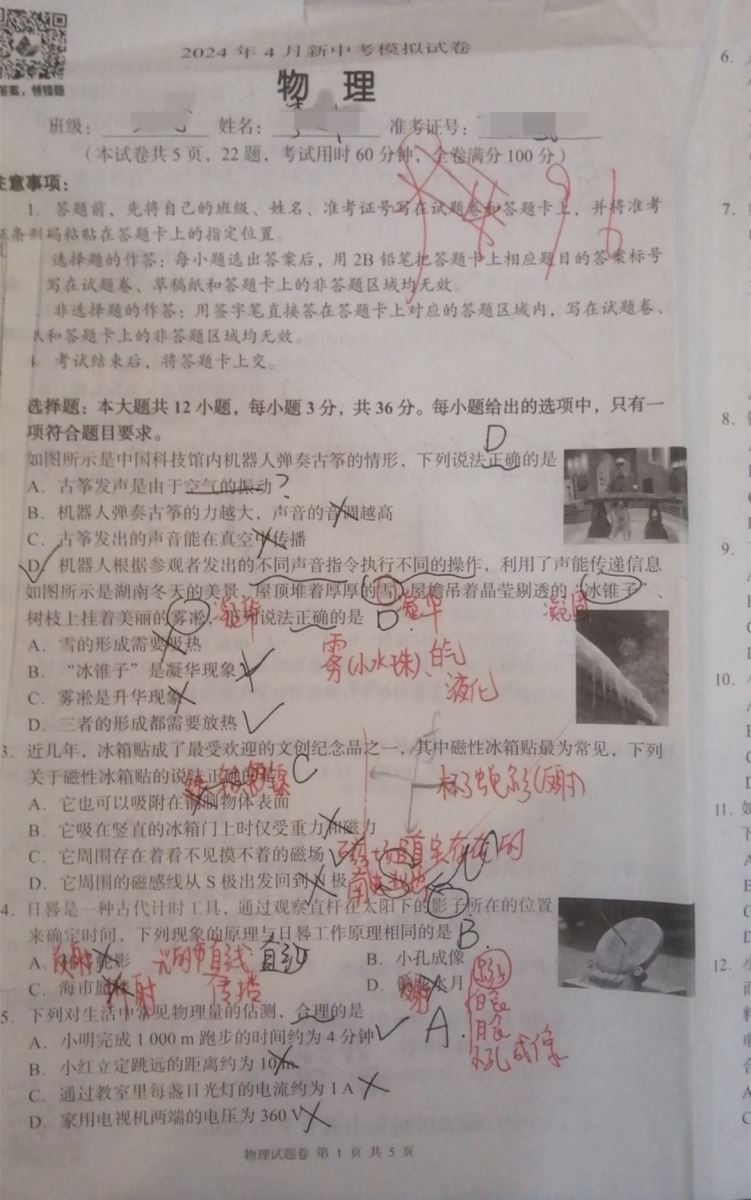 答案，领错题
2024年4月新中考模拟试卷
物 理
班级： 姓名： 准考证号：
（本试卷共5页，22题，考试用时60分钟，全卷满分100分）
96
注意事项：
1. 答题前，先将自己的班级、姓名、准考证号写在试题卷和答题卡上，并将准考
证条形码粘贴在答题卡上的指定位置。
选择题的作答：每小题选出答案后，用2B铅笔把答题卡上相应题目的答案标号
写在试题卷、草稿纸和答题卡上的非答题区域均无效。
非选择题的作答：用签字笔直接答在答题卡上对应的答题区域内，写在试题卷、
纸和答题卡上的非答题区域均无效。
考试结束后，将答题卡上交。
选择题：本大题共12小题，每小题3分，共36分。每小题给出的选项中，只有一
项符合题目要求。
D
如图所示是中国科技馆内机器人弹奏古筝的情形，下列说法正确的是
A. 古筝发声是由于空气的振动？
B. 机器人弹奏古筝的力越大，声音的音调越高
C. 古筝发出的声音能在真空中传播
D. 机器人根据参观者发出的不同声音指令执行不同的操作，利用了声能传递信息
如图所示是湖南冬天的美景，屋顶堆着厚厚的雪，屋檐吊着晶莹剔透的“冰锥子”、
树枝上挂着美丽的雾凇，下列说法正确的是 D
凝华 凝华 凝固
A. 雪的形成需要吸热
雾(小水珠)、白气
B. “冰锥子”是凝华现象
液化
C. 雾凇是升华现象
D. 三者的形成都需要放热
3. 近几年，冰箱贴成了最受欢迎的文创纪念品之一，其中磁性冰箱贴最为常见，下列
关于磁性冰箱贴的说法正确的是 C
A. 它也可以吸附在铜制物体表面
B. 它吸在竖直的冰箱门上时仅受重力和磁力
C. 它周围存在着看不见摸不着的磁场 磁场是真实存在的
D. 它周围的磁感线从S极出发回到N极
4. 日晷是一种古代计时工具，通过观察直杆在太阳下的影子所在的位置
来确定时间，下列现象的原理与日晷工作原理相同的是 B.
反射 光的直线 传播
A. 杯弓蛇影
B. 小孔成像
C. 海市蜃楼
D. 镜花水月
影子
日食
月食
小孔成像
5. 下列对生活中常见物理量的估测，合理的是
A. 小明完成1 000 m跑步的时间约为4分钟 A.
B. 小红立定跳远的距离约为10 m
C. 通过教室里每盏日光灯的电流约为1 A
D. 家用电视机两端的电压为360 V
物理试题卷 第1页 共5页
6.
7.
8.
9.
10.
11.
12.